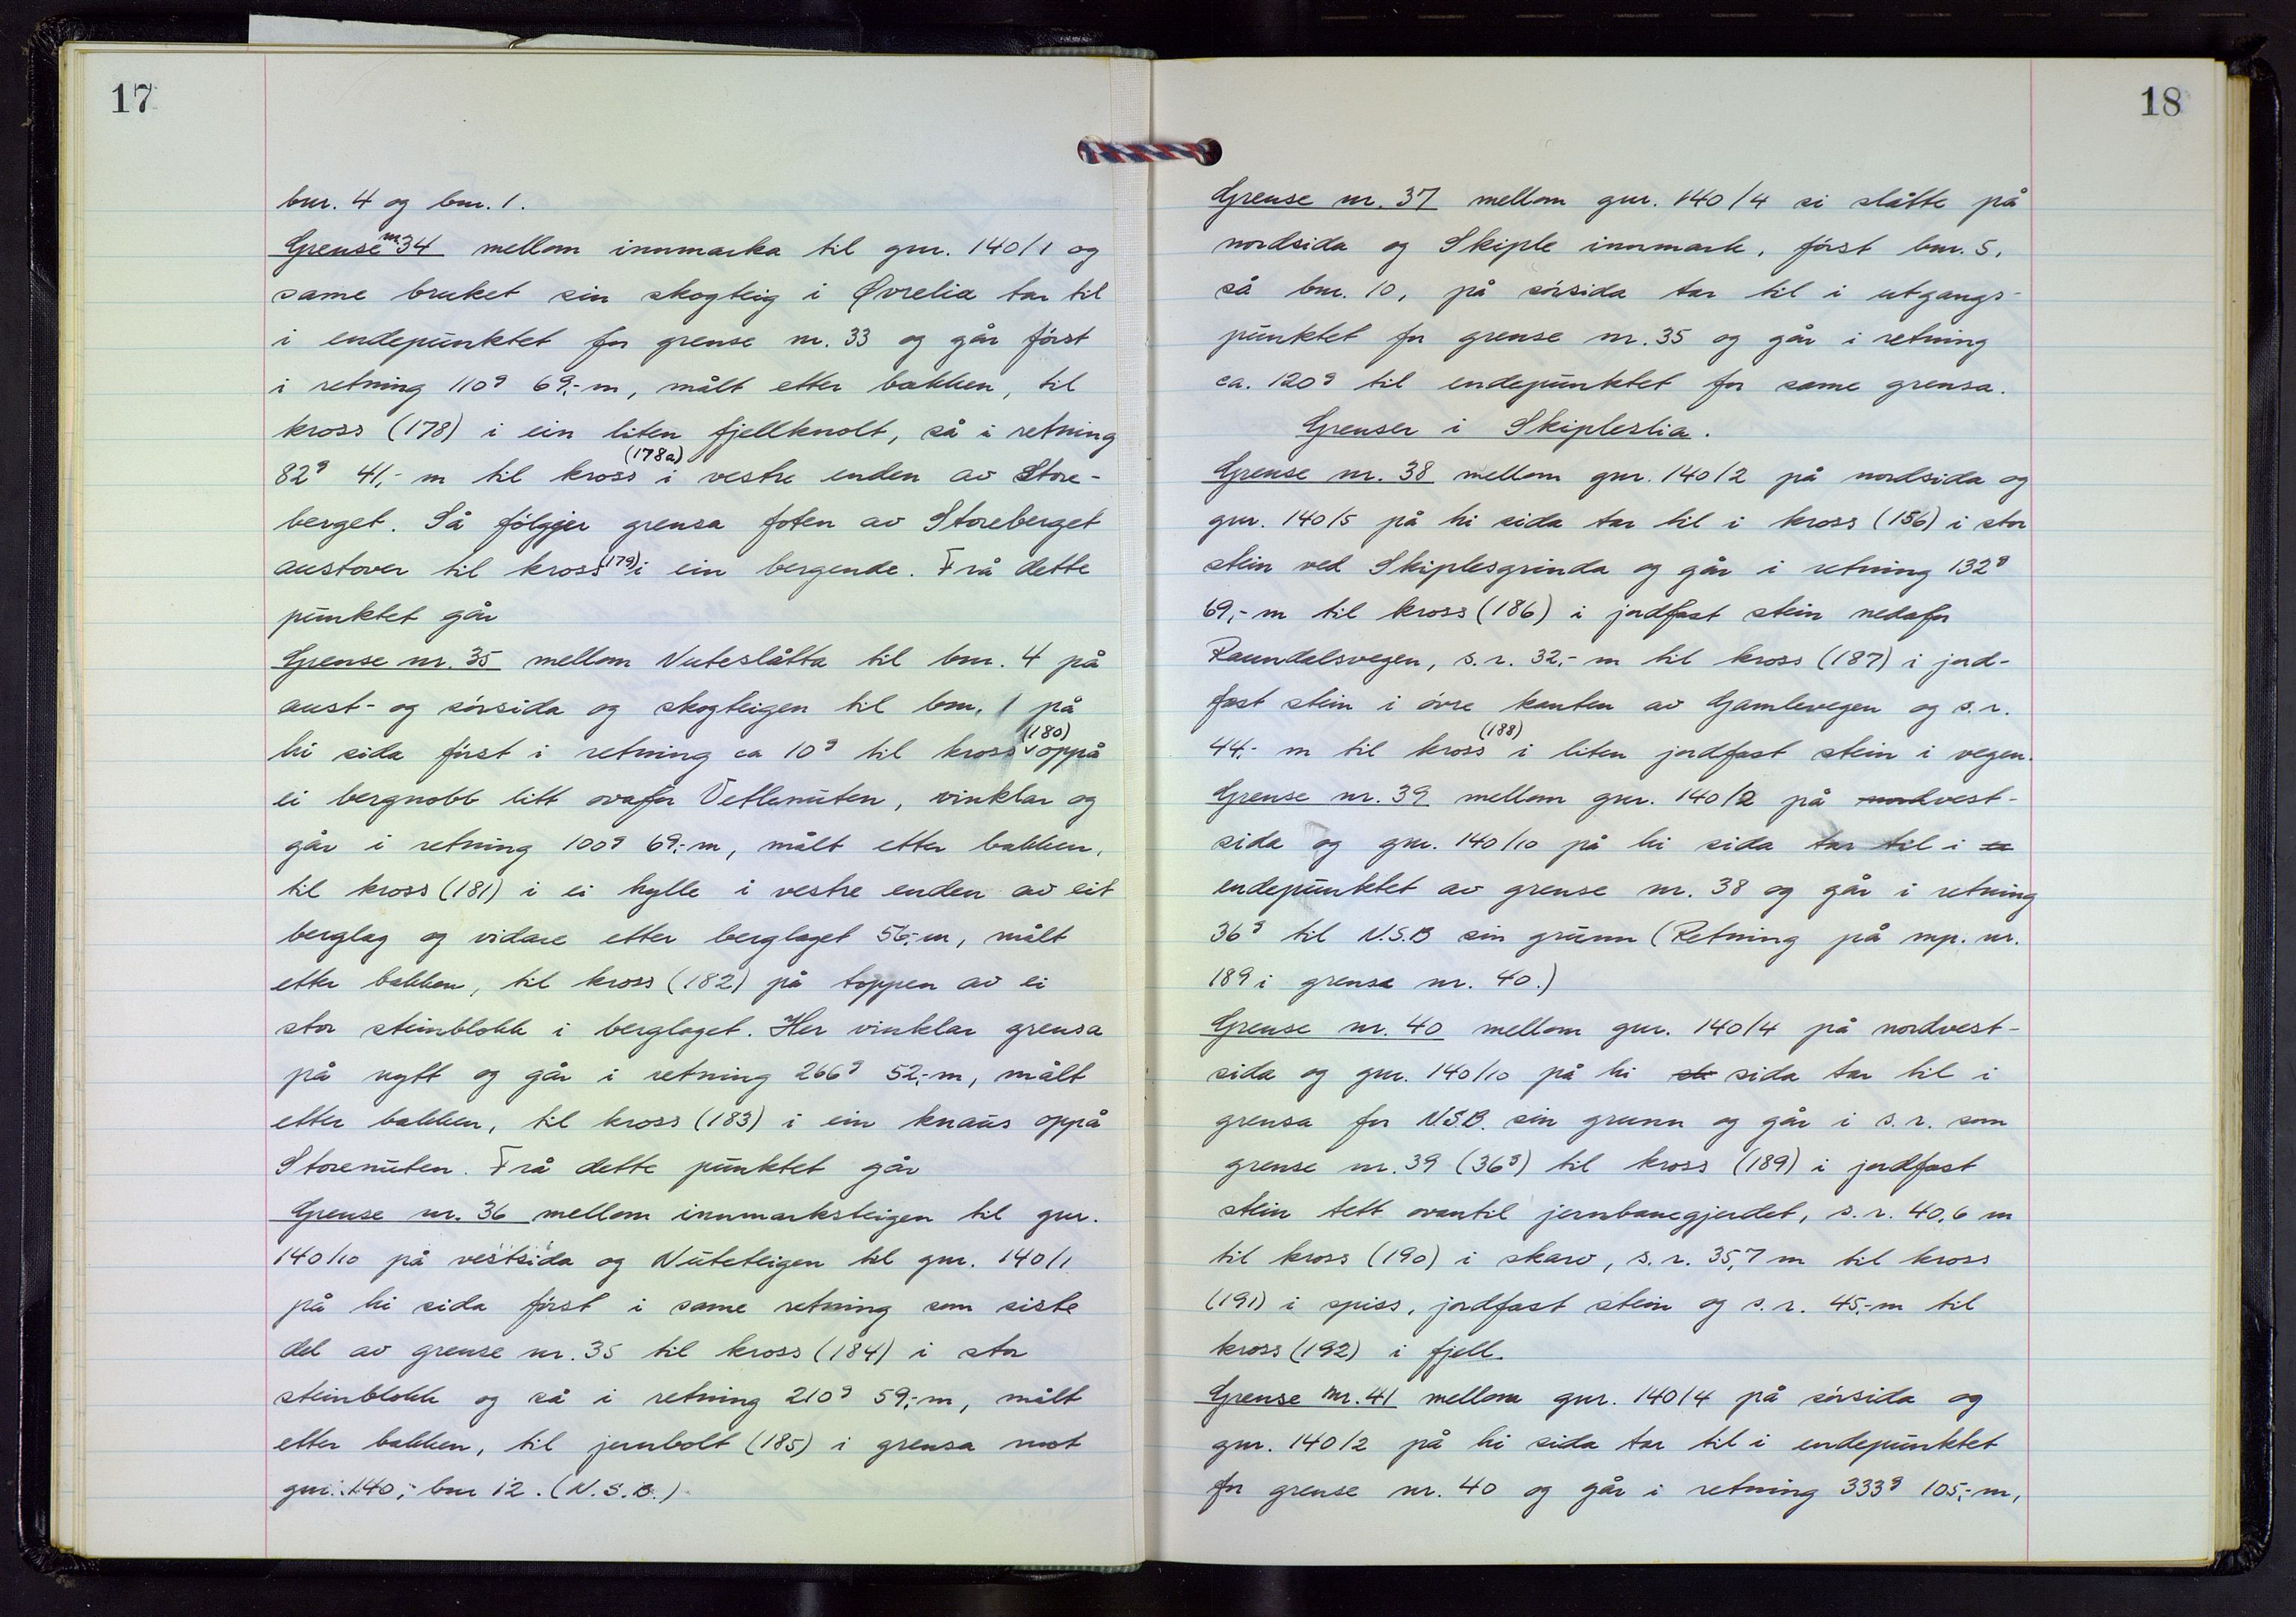 17
bnr. 4 og bnr. 1.
Grense nr. 34 mellom innmarka til gnr. 140/1 og
same bruket sin skogteig i Øvrelia tar til
i endepunktet for grense nr. 33 og går først
i retning 110g 69,- m, målt etter bakken, til
kross (178) i ein liten fjellknolt, så i retning
82g 41,- m til kross (178a) i vestre enden av Store-
berget. Så følgjer grensa foten av Storeberget
austover til kross (179) i ein bergende. Frå dette
punktet går
Grense nr. 35 mellom Nuteslåtta til bnr. 4 på
aust- og sørsida og skogteigen til bnr. 1 på
hi sida først i retning ca 10g til kross (180) oppå
ei bergnobb litt ovafor Vetlenuten, vinklar og
går i retning 100g 69,- m, målt etter bakken,
til kross (181) i ei hylle i vestre enden av eit
berglag og vidare etter berglaget 56,- m, målt
etter bakken, til kross (182) på toppen av ei
stor steinblokk i berglaget. Her vinklar grensa
på nytt og går i retning 266g 52,- m, målt
etter bakken, til kross (183) i ein knaus oppå
Storenuten. Frå dette punktet går
Grense nr. 36 mellom innmarksteigen til gnr.
140/10 på vestsida og Nuteteigen til gnr. 140/1
på hi sida først i same retning som siste
del av grense nr. 35 til kross (184) i stor
steinblokk og så i retning 210g 59,- m, målt
etter bakken, til jernbolt (185) i grensa mot
gnr. 140,- bnr 12. (N.S.B.)
18
Grense nr. 37 mellom gnr. 140/4 si slåtte på
nordsida og Skiple innmark, først bnr. 5,
så bnr. 10, på sørsida tar til i utgangs-
punktet for grense nr. 35 og går i retning
ca. 120g til endepunktet for same grensa.
Grenser i Skipleslia.
Grense nr. 38 mellom gnr. 140/2 på nordsida og
gnr. 140/5 på hi sida tar til i kross (156) i stor
stein ved Skiplesgrinda og går i retning 132g
69,- m til kross (186) i jordfast stein nedafor
Raundalsvegen, s.r. 32,- m til kross (187) i jord-
fast stein i øvre kanten av Gamlevegen og s.r.
44,- m til kross (188) i liten jordfast stein i vegen.
Grense nr. 39 mellom gnr. 140/2 på nordvest-
sida og gnr. 140/10 på hi sida tar til i
endepunktet av grense nr. 38 og går i retning
36g til N.S.B sin grunn (Retning på mp. nr.
189 i grensa nr. 40.)
Grense nr. 40 mellom gnr. 140/4 på nordvest-
sida og gnr. 140/10 på hi sida tar til i
grensa for N.S.B. sin grunn og går i s.r. som
grense nr. 39 (36g) til kross (189) i jordfast
stein tett ovantil jernbanegjerdet, s.r. 40,6 m
til kross (190) i skarv, s.r. 35,7 m til kross
(191) i spiss, jordfast stein og s.r. 45,- m til
kross (192) i fjell.
Grense nr. 41 mellom gnr. 140/4 på sørsida og
gnr. 140/2 på hi sida tar til i endepunktet
for grense nr. 40 og går i retning 333g 105,- m,